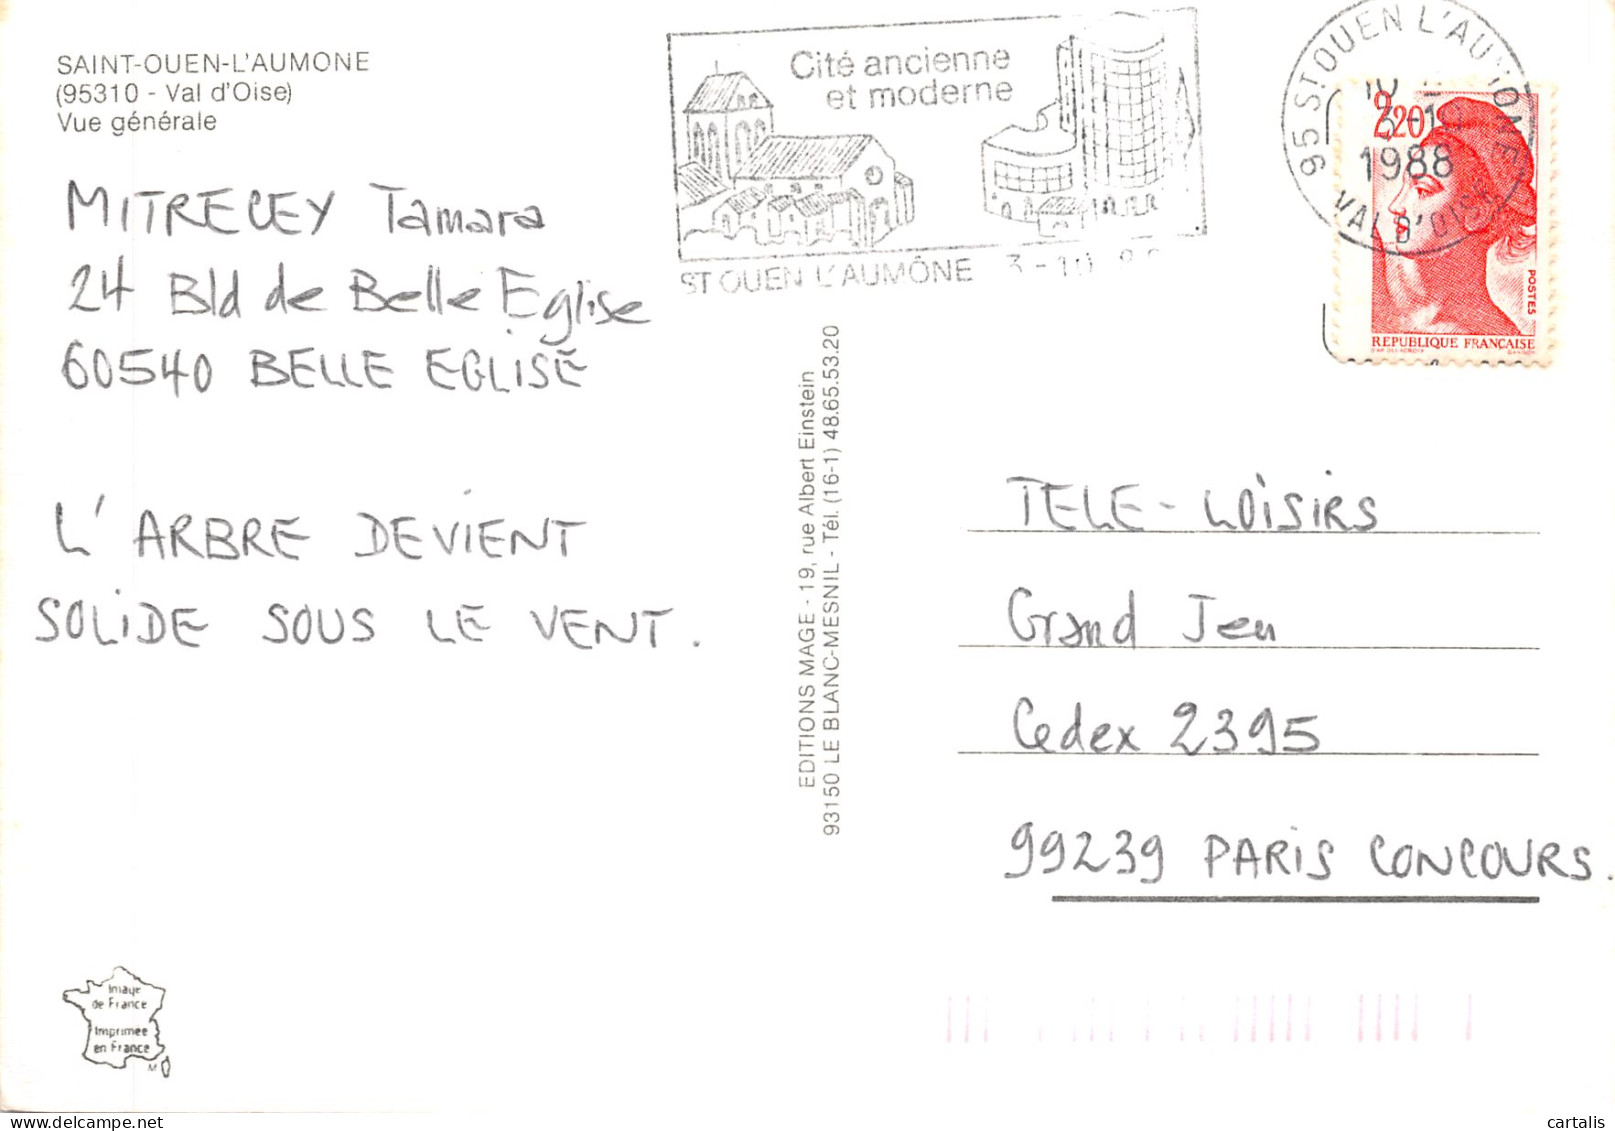 SAINT-OUEN-L'AUMONE
(95310 - Val d'Oise)
Vue générale
Cité ancienne
et moderne
ST OUEN L'AUMÔNE 3-10
95 ST OUEN L'AUMONE
1988
VAL D'OISE
2,20
POSTES
REPUBLIQUE FRANÇAISE
MITRECEY Tamara
24 Bld de Belle Eglise
60540 BELLE EGLISE
L'ARBRE DEVIENT
SOLIDE SOUS LE VENT.
EDITIONS MAGE - 19, rue Albert Einstein
93150 LE BLANC-MESNIL - Tél. (16-1) 48.65.53.20
TELE-LOISIRS
Grand Jeu
Cedex 2395
99239 PARIS CONCOURS.
Image
de France
Imprimee
en France
M
cartalis